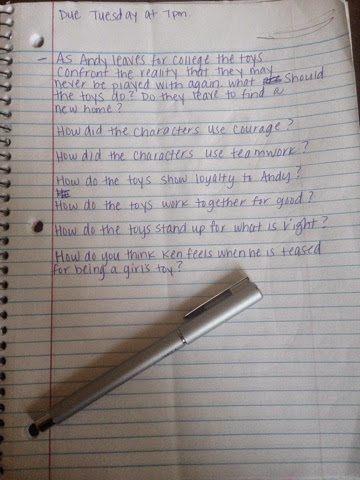 Due Tuesday at 7pm.
- As Andy leaves for college the toys
confront the reality that they may
never be played with again. what should
the toys do? Do they leave to find a
new home?
How did the characters use courage?
How did the characters use teamwork?
How do the toys show loyalty to Andy?
How do the toys work together for good?
How do the toys stand up for what is right?
How do you think Ken feels when he is teased
for being a girls toy?